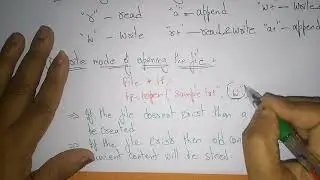 "r" — read "a" — append
"w" — write r+ — read & write "a+" — append
w+ — write
write mode of opening the file:
File *fp
fp=fopen("sample.txt", "w"
⇒ If the file doesnot exist than a
be created
⇒ If the file exists then old con
current content will be stored.